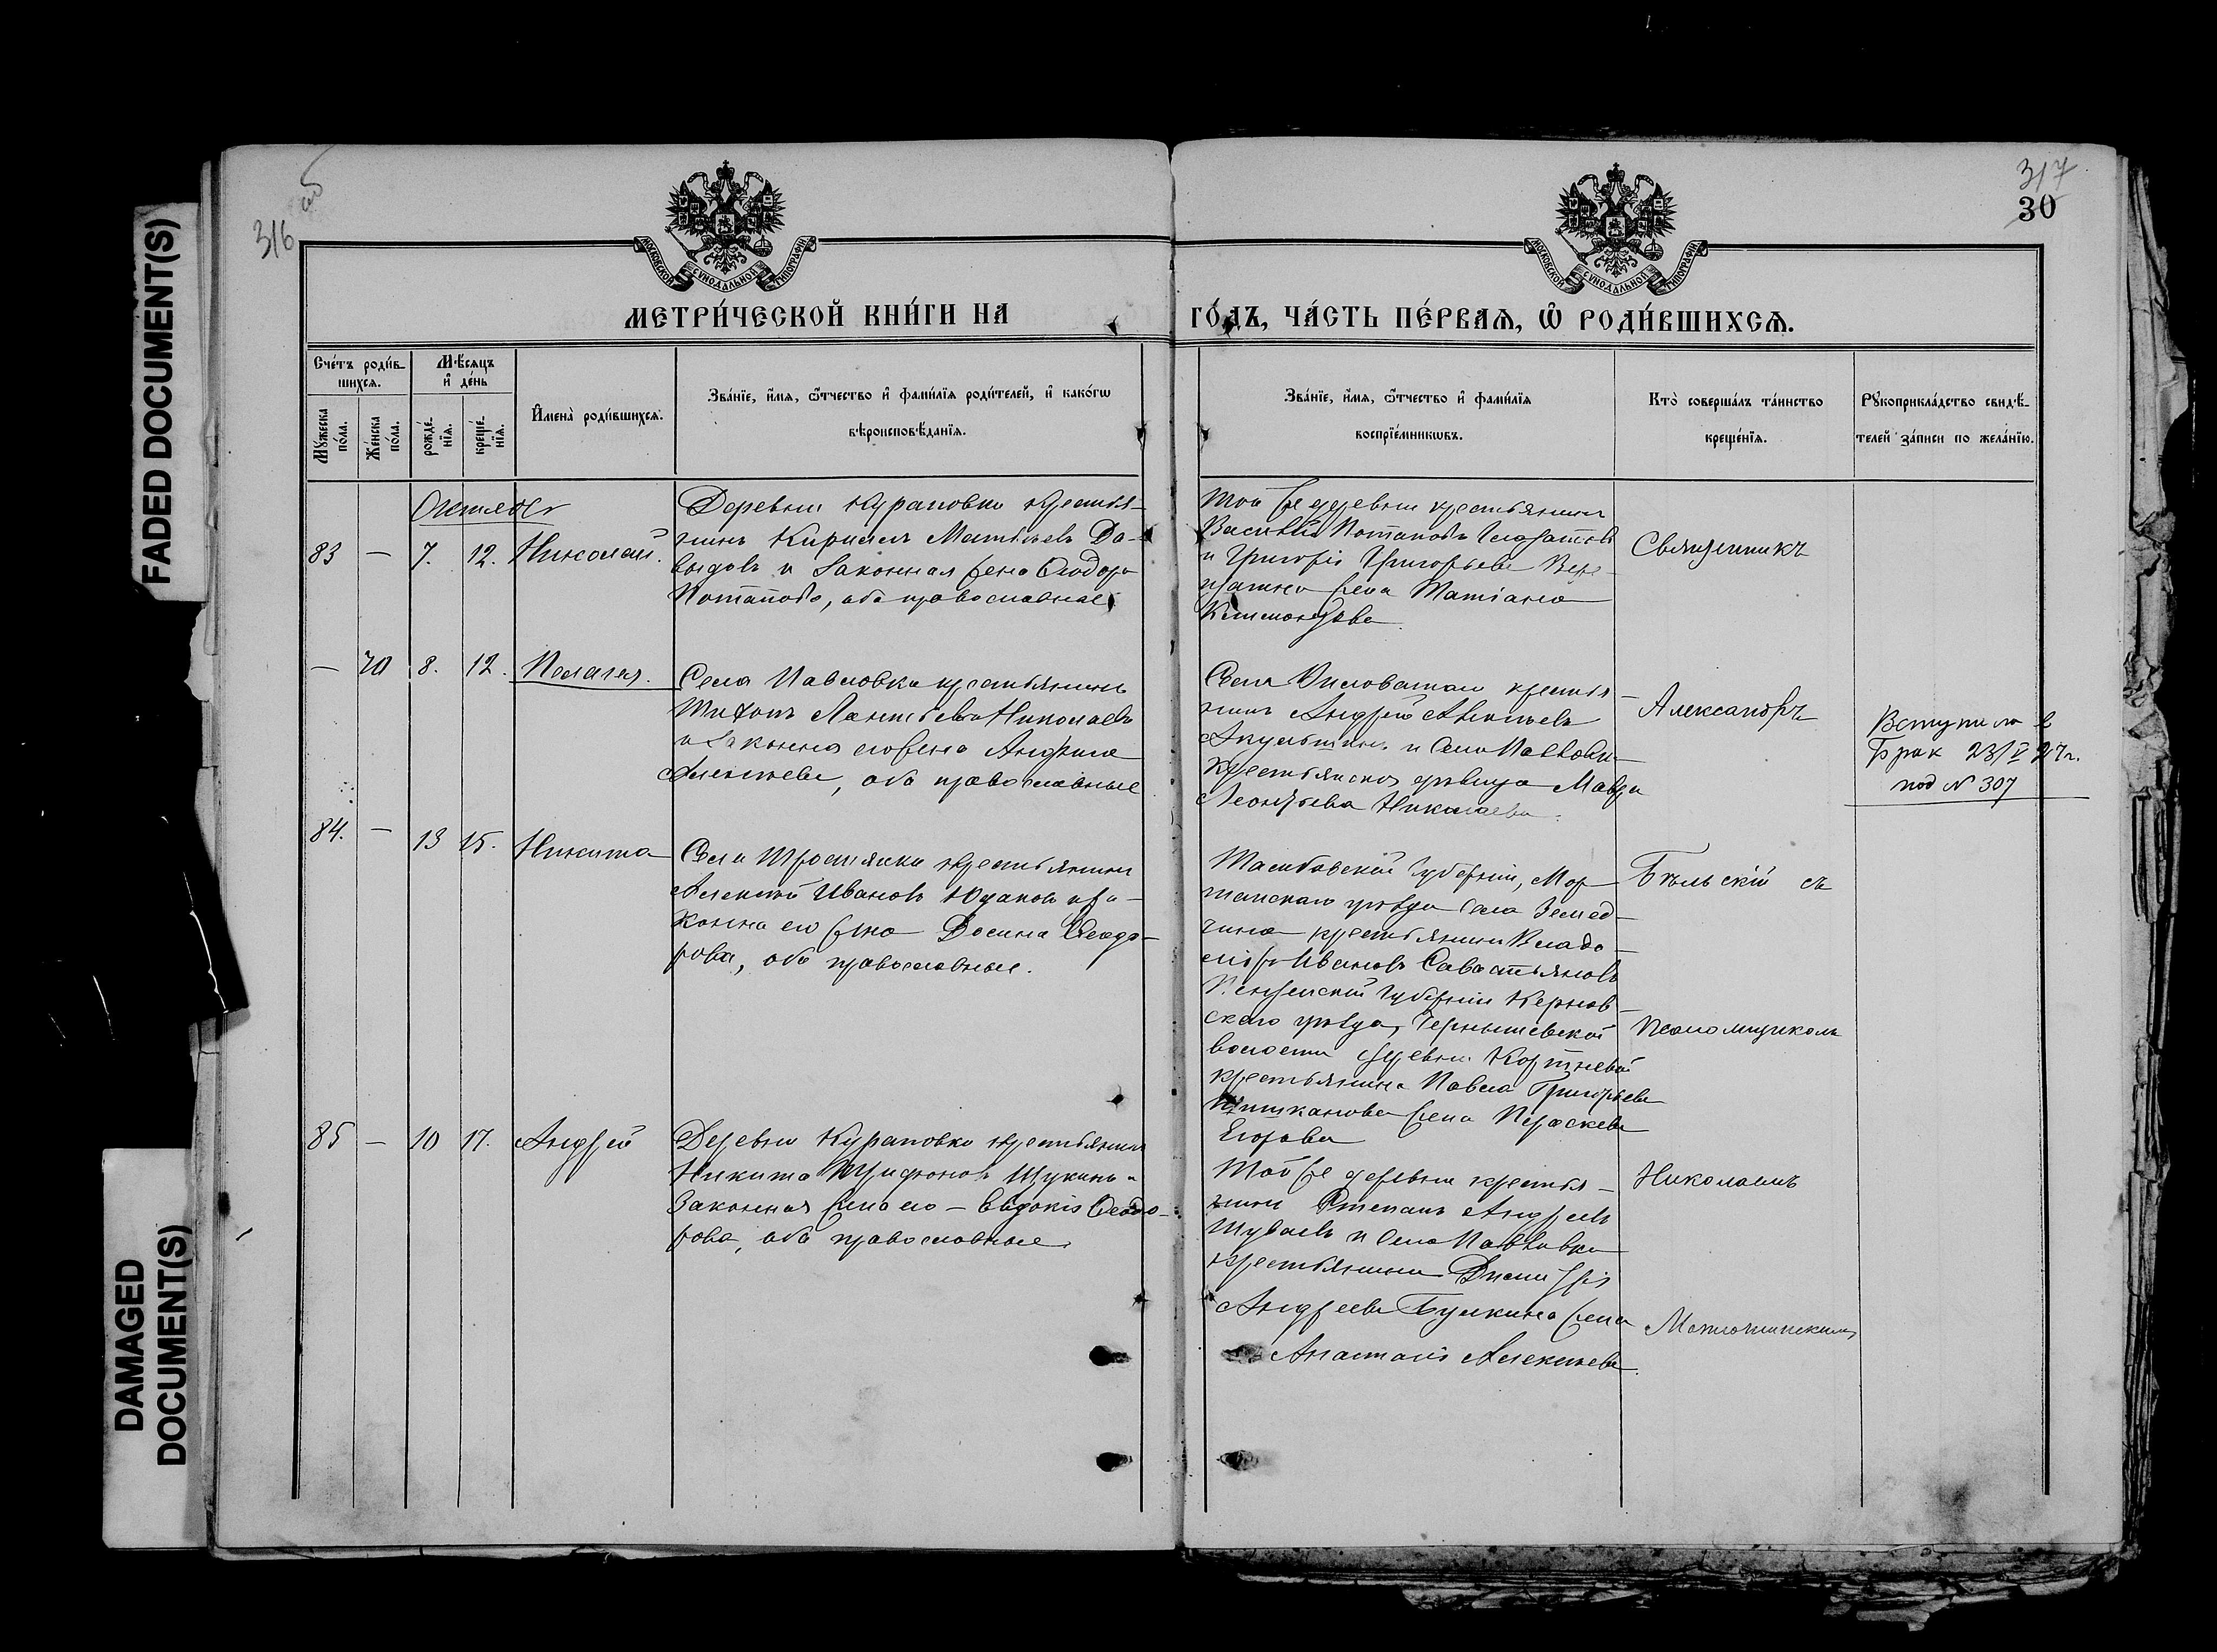 FADED DOCUMENT(S)
DAMAGED
DOCUMENT(S)
316 об
317
30
МОСКОВСКОЙ СѴНОДАЛЬНОЙ ТИПОГРАФІИ
МОСКОВСКОЙ СѴНОДАЛЬНОЙ ТИПОГРАФІИ
МЕТРИ́ЧЕСКОЙ КНИ́ГИ НА ГО́ДЪ, ЧА́СТЬ ПЕ́РВАѦ, Ѽ РОДИ́ВШИХСѦ.
Сче́тъ роди́в-
шихсѧ.
Мꙋ́жеска
по́ла.
Же́нска
по́ла.
Мѣ́сѧцъ
и҆ де́нь
рожде́-
нїѧ.
креще́-
нїѧ.
И҆мена̀ роди́вшихсѧ.
Зва́нїе, и҆́мѧ, ѻ҆́тчество и҆ фами́лїѧ роди́телей, и҆ како́гѡ
вѣроисповѣ́данїѧ.
Зва́нїе, и҆́мѧ, ѻ҆́тчество и҆ фами́лїѧ
воспрїе́мникѡвъ.
Кто̀ соверша́лъ та́инство
креще́нїѧ.
Рꙋкоприкла́дство свидѣ́-
телей за́писи по жела́нїю.
83 — 7. 12. Николай.
Деревни Курановки крестья-
нинъ Кириллъ Матвѣевъ Да-
выдовъ и законная жена Ѳеодора
Потапова, оба православные
Той же деревни крестьянинъ
Василій Потаповъ
и Григорія Григорьева
жена Татіана
Священникъ
— 70 8. 12. Пелагея.
Села Павловки крестьянинъ
Тихонъ Николаевъ
и законная его жена
Алексѣева, оба православные
Села Висловатаго крестья-
нинъ Андрей
и села Павловки
крестьянская дѣвица Мавра
Леонтьева Николаева.
Александръ
Вступила в
брак 23/V 27 г.
под N 307
84. — 13 15. Никита
Села Тростянки крестьянинъ
Алексѣй Ивановъ Юдаковъ и за-
конная его жена Ѳеодо-
рова, оба православные.
Тамбовской губерніи, Мор-
шанскаго уѣзда села Земет-
чина крестьянинъ Влади-
міръ Ивановъ Савостьяновъ
Пензенской губерніи Керен-
скаго уѣзда, Чернышевской
волости деревни
крестьянина Павла Григорьева
жена Параскева
Егорова
Бѣльскій съ
псаломщикомъ
85 — 10 17. Андрей
Деревни Курановки крестьянинъ
Никита Трифоновъ Щукинъ и
законная жена его — Евдокія Ѳеодо-
рова, оба православные
Той же деревни крестья-
нинъ Степанъ Андреевъ
Шуваевъ и села Павловки
крестьянина Димитрія
Андреева Булкина жена
Анастасія Алексѣева.
Николаемъ